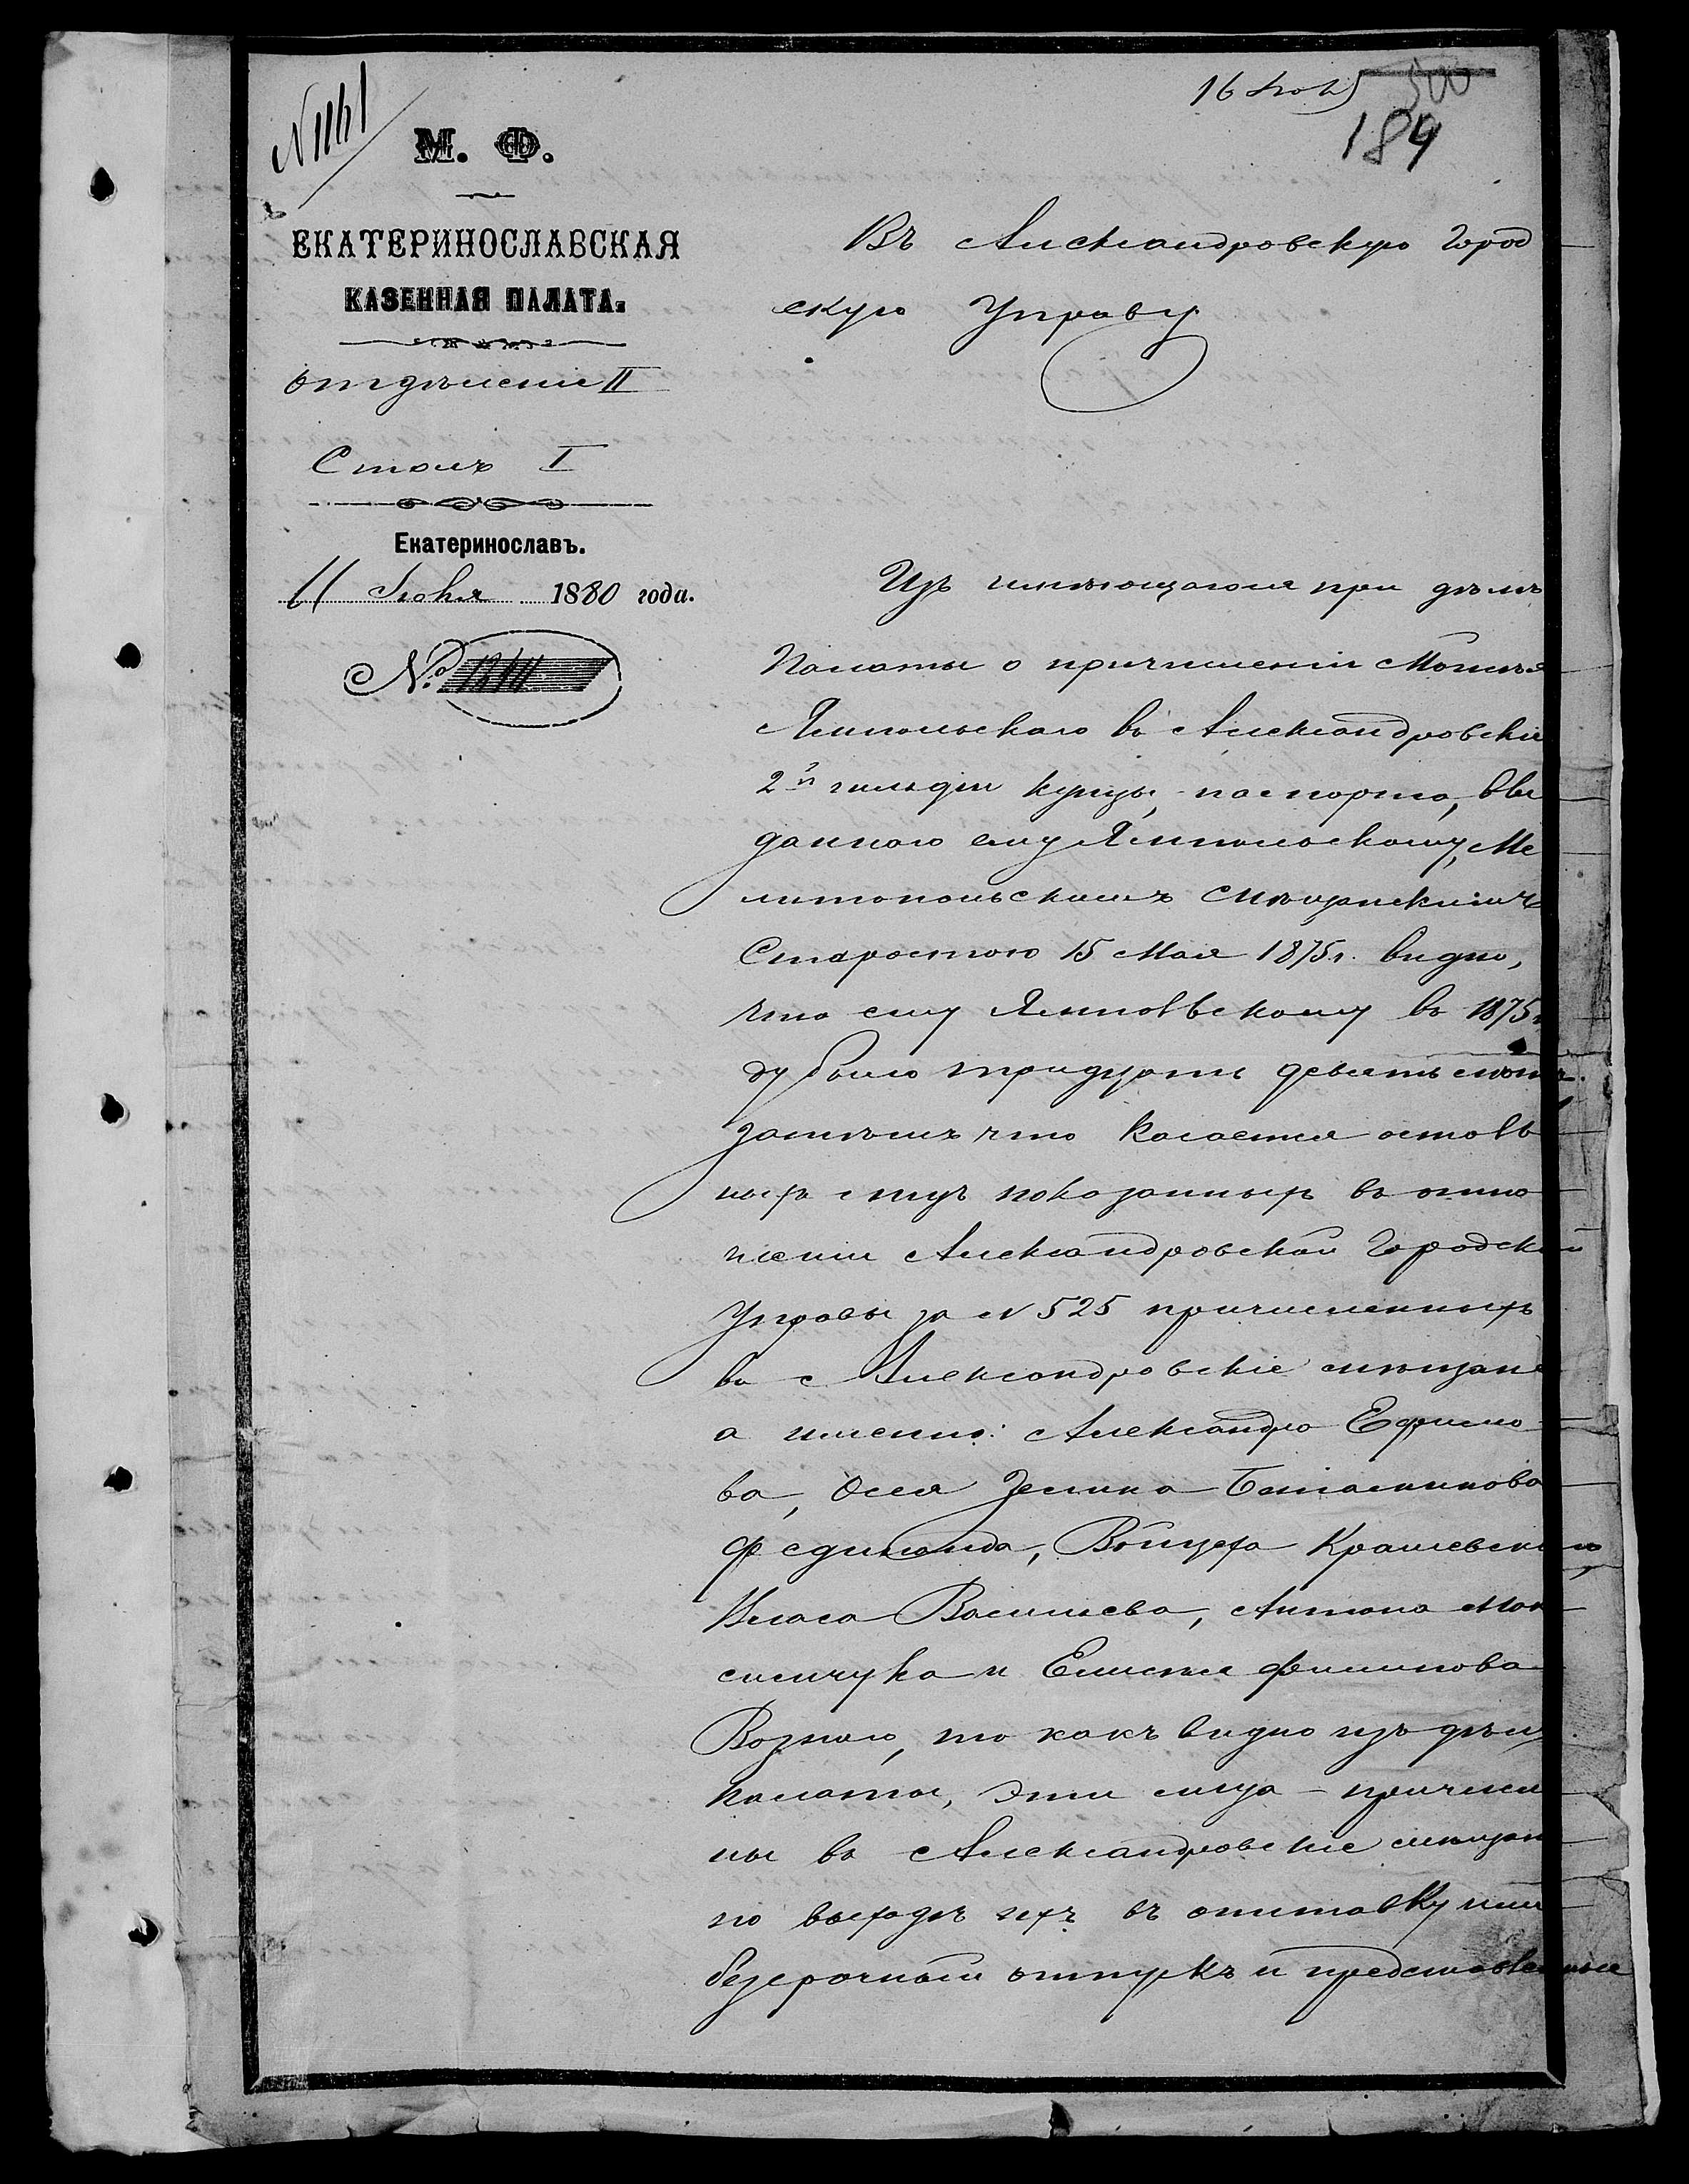 16 Іюня
184
N 1161
М. Ф.
ЕКАТЕРИНОСЛАВСКАЯ
КАЗЕННАЯ ПАЛАТА.
Отдѣленіе II
Столъ I
Екатеринославъ.
11 Іюня 1880 года.
№
Въ Александровскую Город
скую Управу
Изъ имѣющагося при дѣлѣ
Палаты о причисленіи
Ямпольскаго въ Александровскіе
2й гильдіи купцы, паспорта, вы
даннаго ему Ямпольскому, Ме
литопольскимъ Мѣщанскимъ
Старостою 15 Мая 1875 г. видно,
что ему Ямпольскому въ 1875 г
ду было тридцать девять лѣтъ.
затѣмъ что касается осталь
ныхъ лицъ показанныхъ въ отно
шеніи Александровской Городской
Управы за N 525 причисленныхъ
въ Александровскіе мѣщане
а именно: Александра Ефимо
ва,
Войцеха Крашевскаго,
Власа Васильева, Антона Мак
симчука и Елисея Филипова
Вознаго, то какъ видно изъ дѣлъ
палаты, эти лица - причисле
ны въ Александровские мѣщане
по выходѣ ихъ въ отставку или
безсрочный отпускъ и представленные